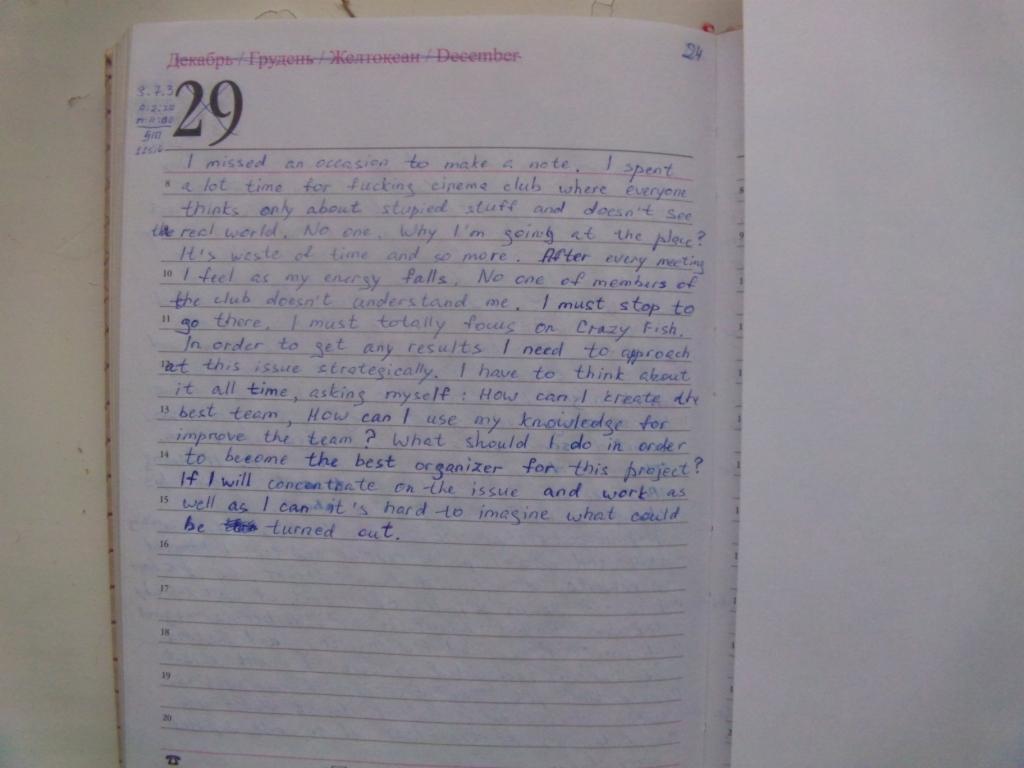 Декабрь / Грудень / Желтоқсан / December
24
29
I missed an occasion to make a note. I spent
8 a lot time for fucking cinema club where everyone
thinks only about stupied stuff and doesn't see
9 the real world. No one. Why I'm going at the place?
It's waste of time and so more. After every meeting
10 I feel as my energy falls. No one of members of
the club doesn't understand me. I must stop to
11 go there. I must totally focus on Crazy Fish.
In order to get any results I need to approach
12 at this issue strategically. I have to think about
it all time, asking myself: How can I kreate the
13 best team, How can I use my knowledge for
improve the team? What should I do in order
14 to become the best organizer for this project?
If I will concentrate on the issue and work as
15 well as I can it's hard to imagine what could
be turned out.
16
17
18
19
20